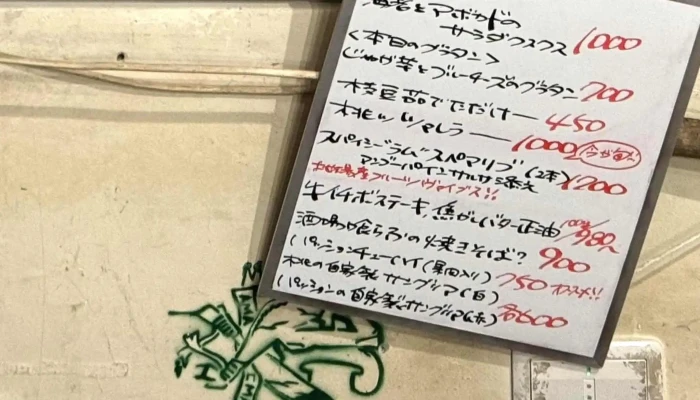 海老とアボカドの
サラダクスクス 1000
<本日のグラタン>
じゃが芋とブルーチーズのグラタン 700
枝豆茹でただけー 450
桃とブッラータ 1000 今が旬!!
スパイシーラムスペアリブ(2本) 1200
マンゴーパインサルサ添え
牛イチボステーキ,焦がしバター正油 100g/980〜
酒場が喰らふの焼きそば? 900
(パッションチューハイ(果肉入り) 750 オススメ!!
桃の自家製サングリア(白)
(パッションの自家製サングリア(赤) 各600